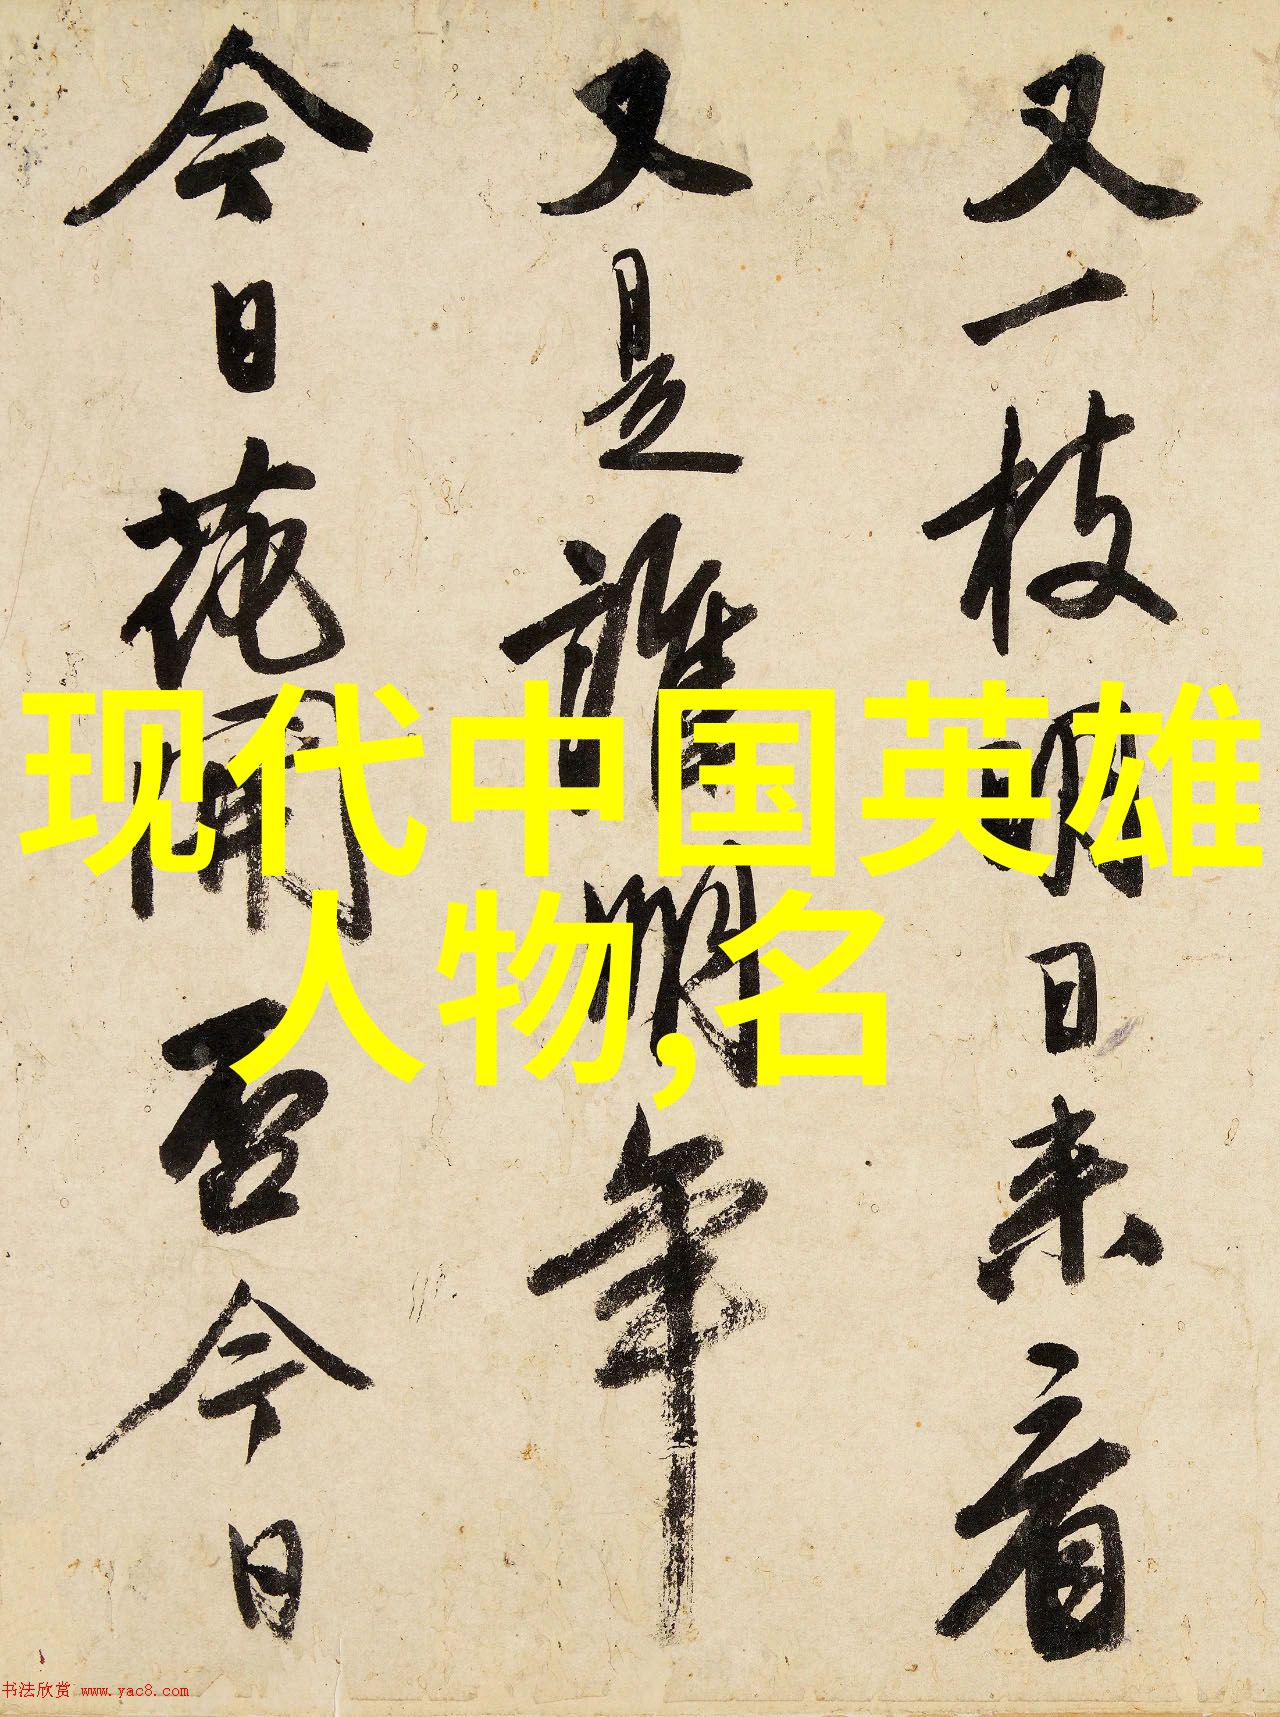 又一枝明日来看
又是誰明年
今日花開否今日
现代中国英雄
人物,名
书法欣赏 www.yac8.com